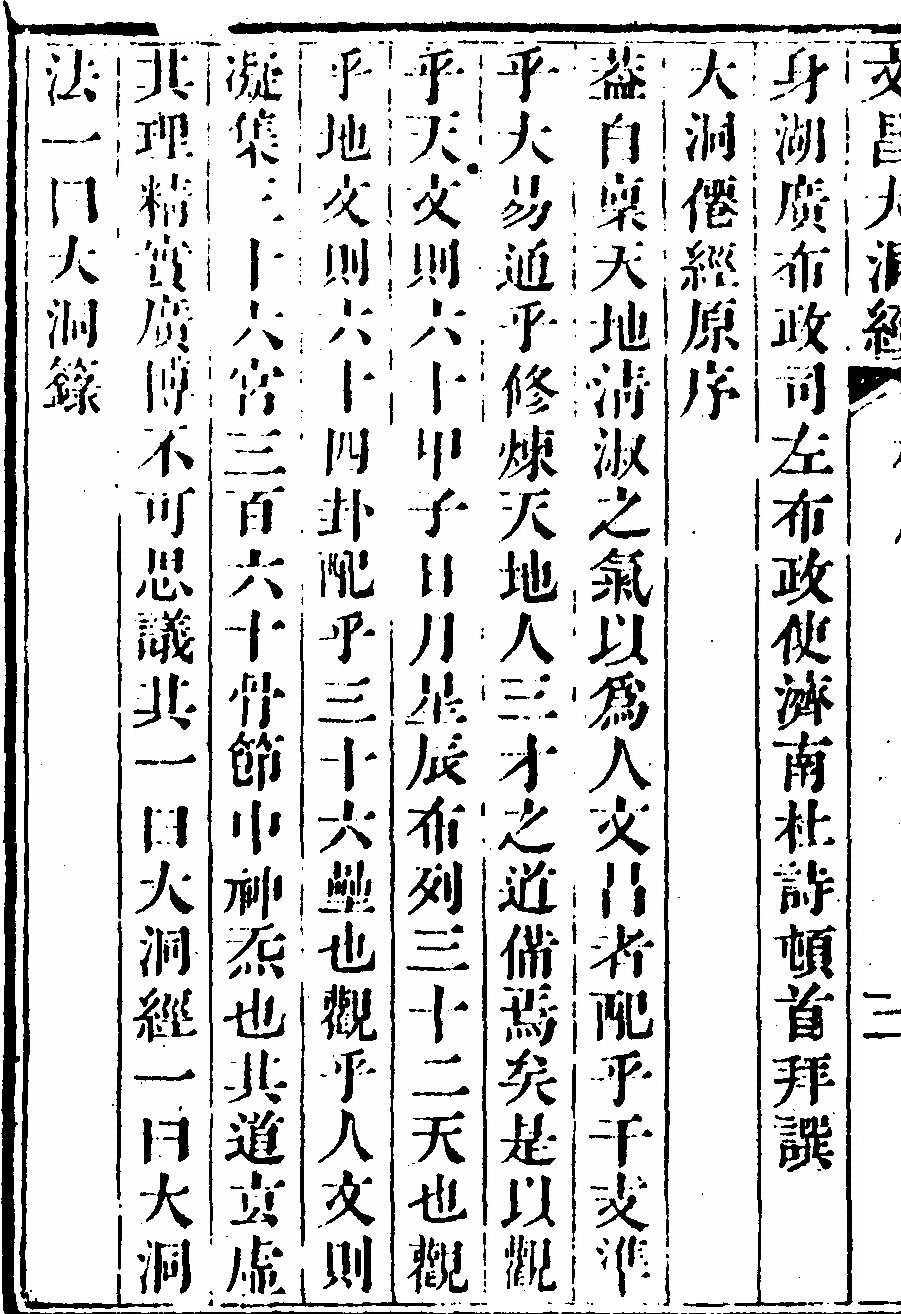 文昌大洞經
二
身湖廣布政司左布政使濟南杜詩頓首拜譔
大洞僊經原序
葢自稟天地淸淑之氣以爲人文昌者配乎干支準
乎大易通乎修煉天地人三才之道備焉矣是以觀
乎天文則六十甲子日月星辰布列三十二天也觀
乎地文則六十四卦配乎三十六壘也觀乎人文則
凝集三十六宮三百六十骨節中神炁也其道玄虛
其理精實廣博不可思議其一曰大洞經一曰大洞
法一曰大洞籙